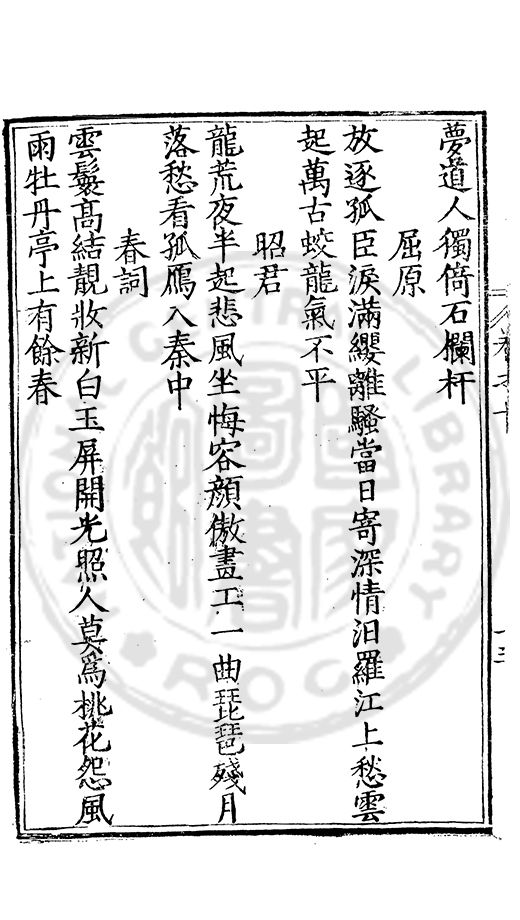 夢道人獨倚石欄杆
屈原
放逐孤臣淚滿纓離騷當日寄深情汨羅江上愁雲
起萬古蛟龍氣不平
昭君
龍荒夜半起悲風坐悔容顏傲畫工一曲琵琶殘月
落愁看孤鴈入秦中
春詞
雲鬟髙結靚妝新白玉屏開光照人莫爲桃花怨風
雨牡丹亭上有餘春
NATIONAL CENTRAL LIBRARY
R.O.C